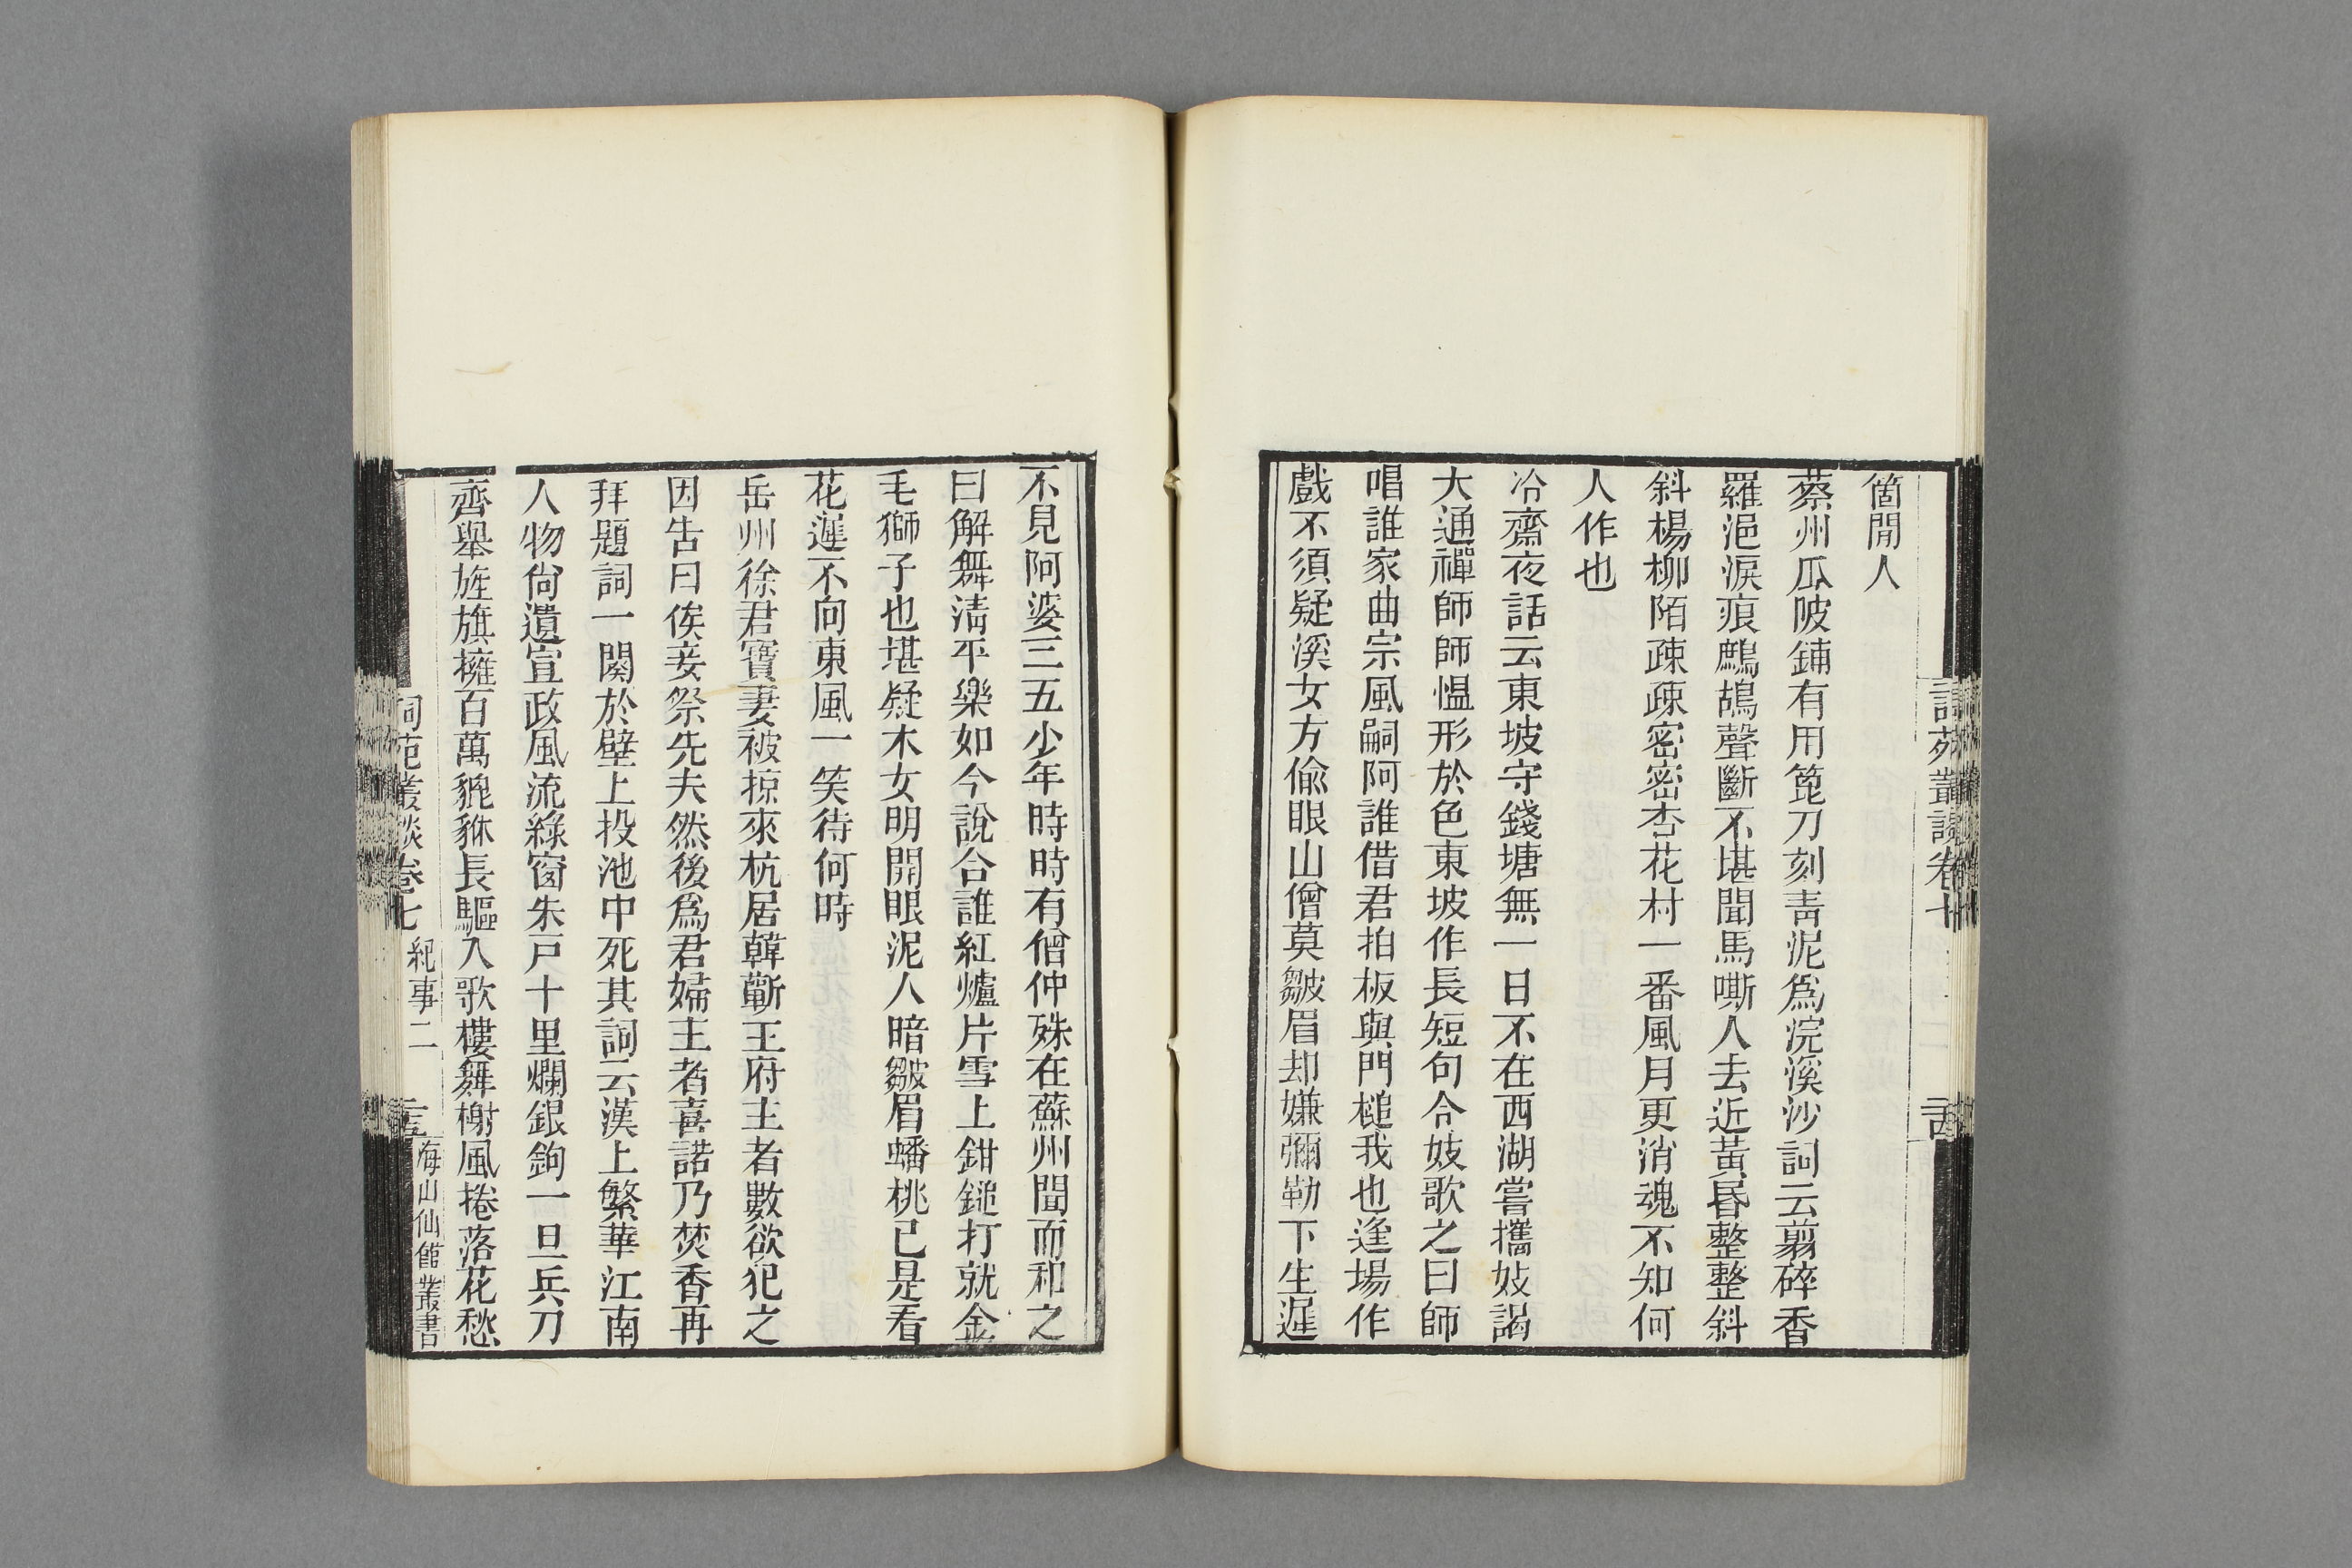 箇閒人
蔡州瓜陂鋪有用篦刀刻青泥爲浣溪沙詞云翦碎香
羅浥淚痕鷓鴣聲斷不堪聞馬嘶人去近黃昏整整斜
斜楊柳陌疎疎密密杏花村一番風月更消魂不知何
人作也
冷齋夜話云東坡守錢塘無一日不在西湖嘗攜妓謁
大通禪師師慍形於色東坡作長短句令妓歌之曰師
唱誰家曲宗風嗣阿誰借君拍板與門槌我也逢場作
戲不須疑溪女方偸眼山僧莫皺眉却嫌彌勒下生遲
不見阿婆三五少年時時有僧仲殊在蘇州聞而和之
曰解舞淸平樂如今說合誰紅爐片雪上鉗鎚打就金
毛獅子也堪疑木女明開眼泥人暗皺眉蟠桃已是看
花遲不向東風一笑待何時
岳州徐君寶妻被掠來杭居韓蘄王府主者數欲犯之
因告曰俟妾祭先夫然後爲君婦主者喜諾乃焚香再
拜題詞一闋於壁上投池中死其詞云漢上繁華江南
人物尙遺宣政風流綠窗朱戸十里爛銀鉤一旦兵刀
齊舉旌旗擁百萬貔貅長驅入歌樓舞榭風捲落花愁
詞苑叢談卷七 紀事二
海山仙館叢書